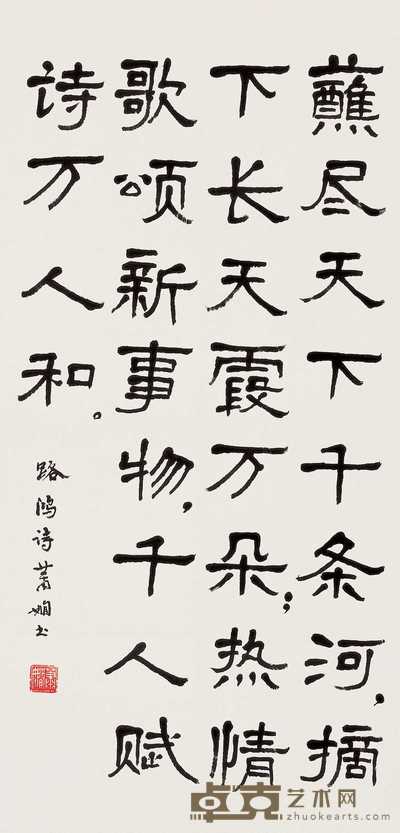 蘸尽天下千条河,摘
下长天霞万朵;热情
歌颂新事物,千人赋
诗万人和。
路鸿诗萧娴书
卓克艺术网
zhuokearts.com